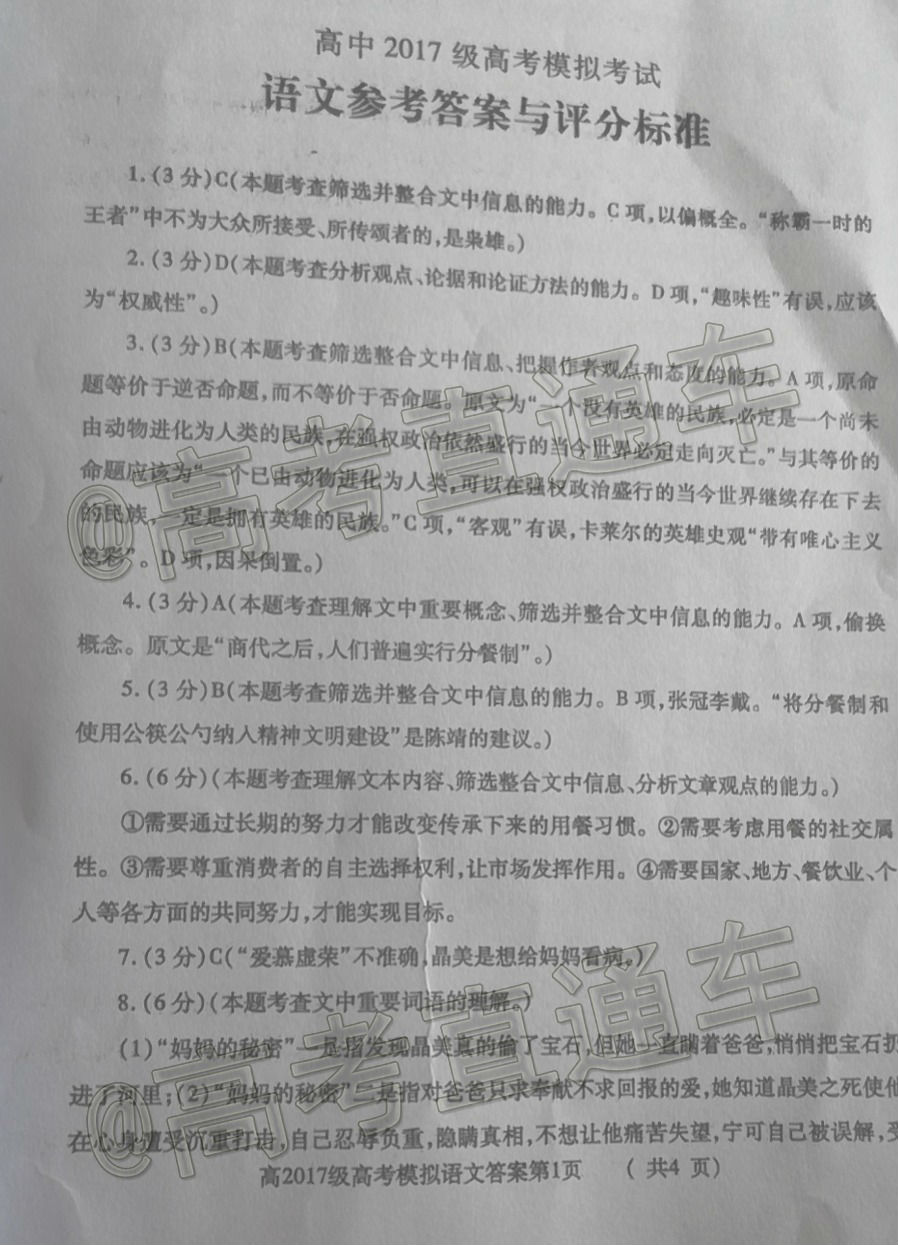 高中2017级高考模拟考试
语文参考答案与评分标准
1.(3分)C(本题考查筛选并整合文中信息的能力。C项,以偏概全。“称霸一时的
王者”中不为大众所接受、所传颂者的,是枭雄。)
2.(3分)D(本题考查分析观点、论据和论证方法的能力。D项,“趣味性”有误,应该
为“权威性”。)
3.(3分)B(本题考查筛选整合文中信息、把握作者观点和态度的能力。A项,原命
题等价于逆否命题,而不等价于否命题。原文为“一个没有英雄的民族,必定是一个尚未
由动物进化为人类的民族,在强权政治依然盛行的当今世界必定走向灭亡。”与其等价的
命题应该为“一个已由动物进化为人类,可以在强权政治盛行的当今世界继续存在下去
的民族,一定是拥有英雄的民族。”C项,“客观”有误,卡莱尔的英雄史观“带有唯心主义
色彩”。D项,因果倒置。)
4.(3分)A(本题考查理解文中重要概念、筛选并整合文中信息的能力。A项,偷换
概念。原文是“商代之后,人们普遍实行分餐制”。)
5.(3分)B(本题考查筛选并整合文中信息的能力。B项,张冠李戴。“将分餐制和
使用公筷公勺纳入精神文明建设”是陈靖的建议。)
6.(6分)(本题考查理解文本内容、筛选整合文中信息、分析文章观点的能力。)
①需要通过长期的努力才能改变传承下来的用餐习惯。②需要考虑用餐的社交属
性。③需要尊重消费者的自主选择权利,让市场发挥作用。④需要国家、地方、餐饮业、个
人等各方面的共同努力,才能实现目标。
7.(3分)C(“爱慕虚荣”不准确,晶美是想给妈妈看病。)
8.(6分)(本题考查文中重要词语的理解。)
(1)“妈妈的秘密”一是指发现晶美真的偷了宝石,但她一直瞒着爸爸,悄悄把宝石扔
进了河里;(2)“妈妈的秘密”二是指对爸爸只求奉献不求回报的爱,她知道晶美之死使他
在心身遭受沉重打击,自己忍辱负重,隐瞒真相,不想让他痛苦失望,宁可自己被误解,受
高2017级高考模拟语文答案第1页 (共4页)
@高考直通车
@高考直通车